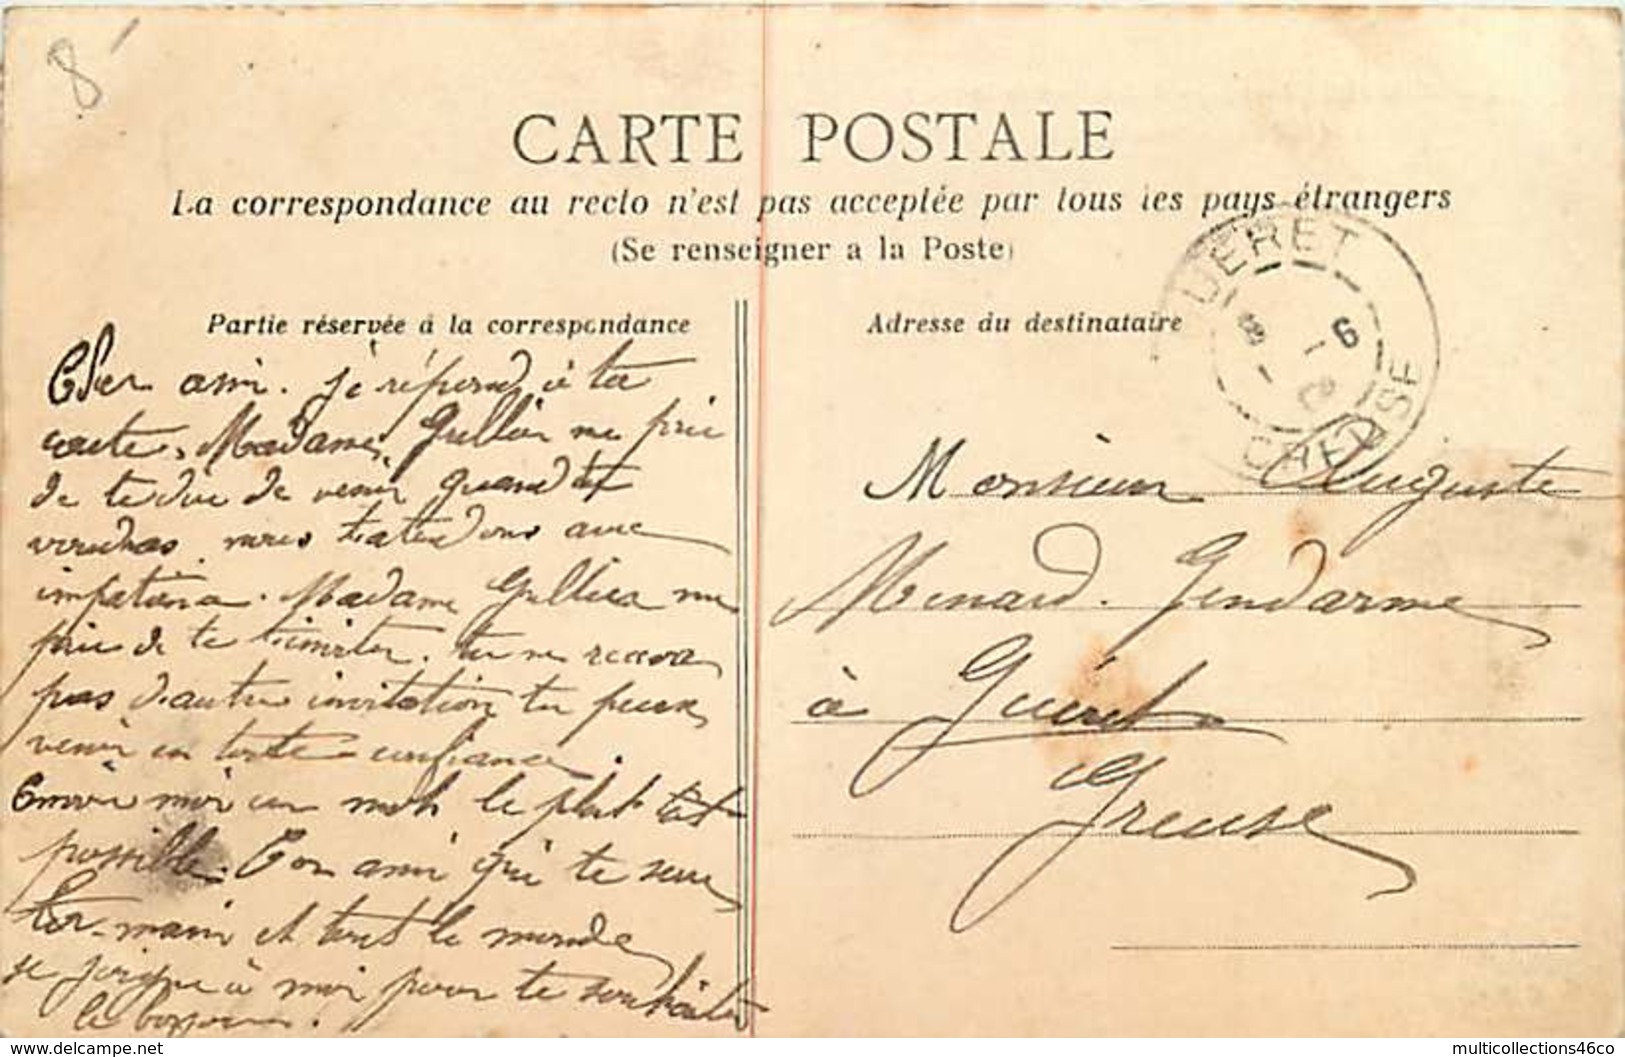 8
CARTE POSTALE
La correspondance au recto n'est pas acceptée par tous les pays étrangers
(Se renseigner a la Poste)
Partie réservée à la correspondance
Cher ami. je répond à ta
carte, Madame Gullier me prie
de te dire de venir quand tu
voudras nous tatendons avec
impatiance. Madame Gullier me
prie de te t'inviter. tu ne recevra
pas d'autre invitation tu peux
venir en toute confiance.
Envoie moi un mot le plut tôt
possible. Ton ami qui te serre
la main et tout le monde
se joigne à moi pour te souhaiter
le bonjour.
Adresse du destinataire
UERET
8 - 1
6
CREUSE
Monsieur Auguste
Menard. Gendarme
à Guéret
Creuse
multicollections46co
https://www.delcampe.net